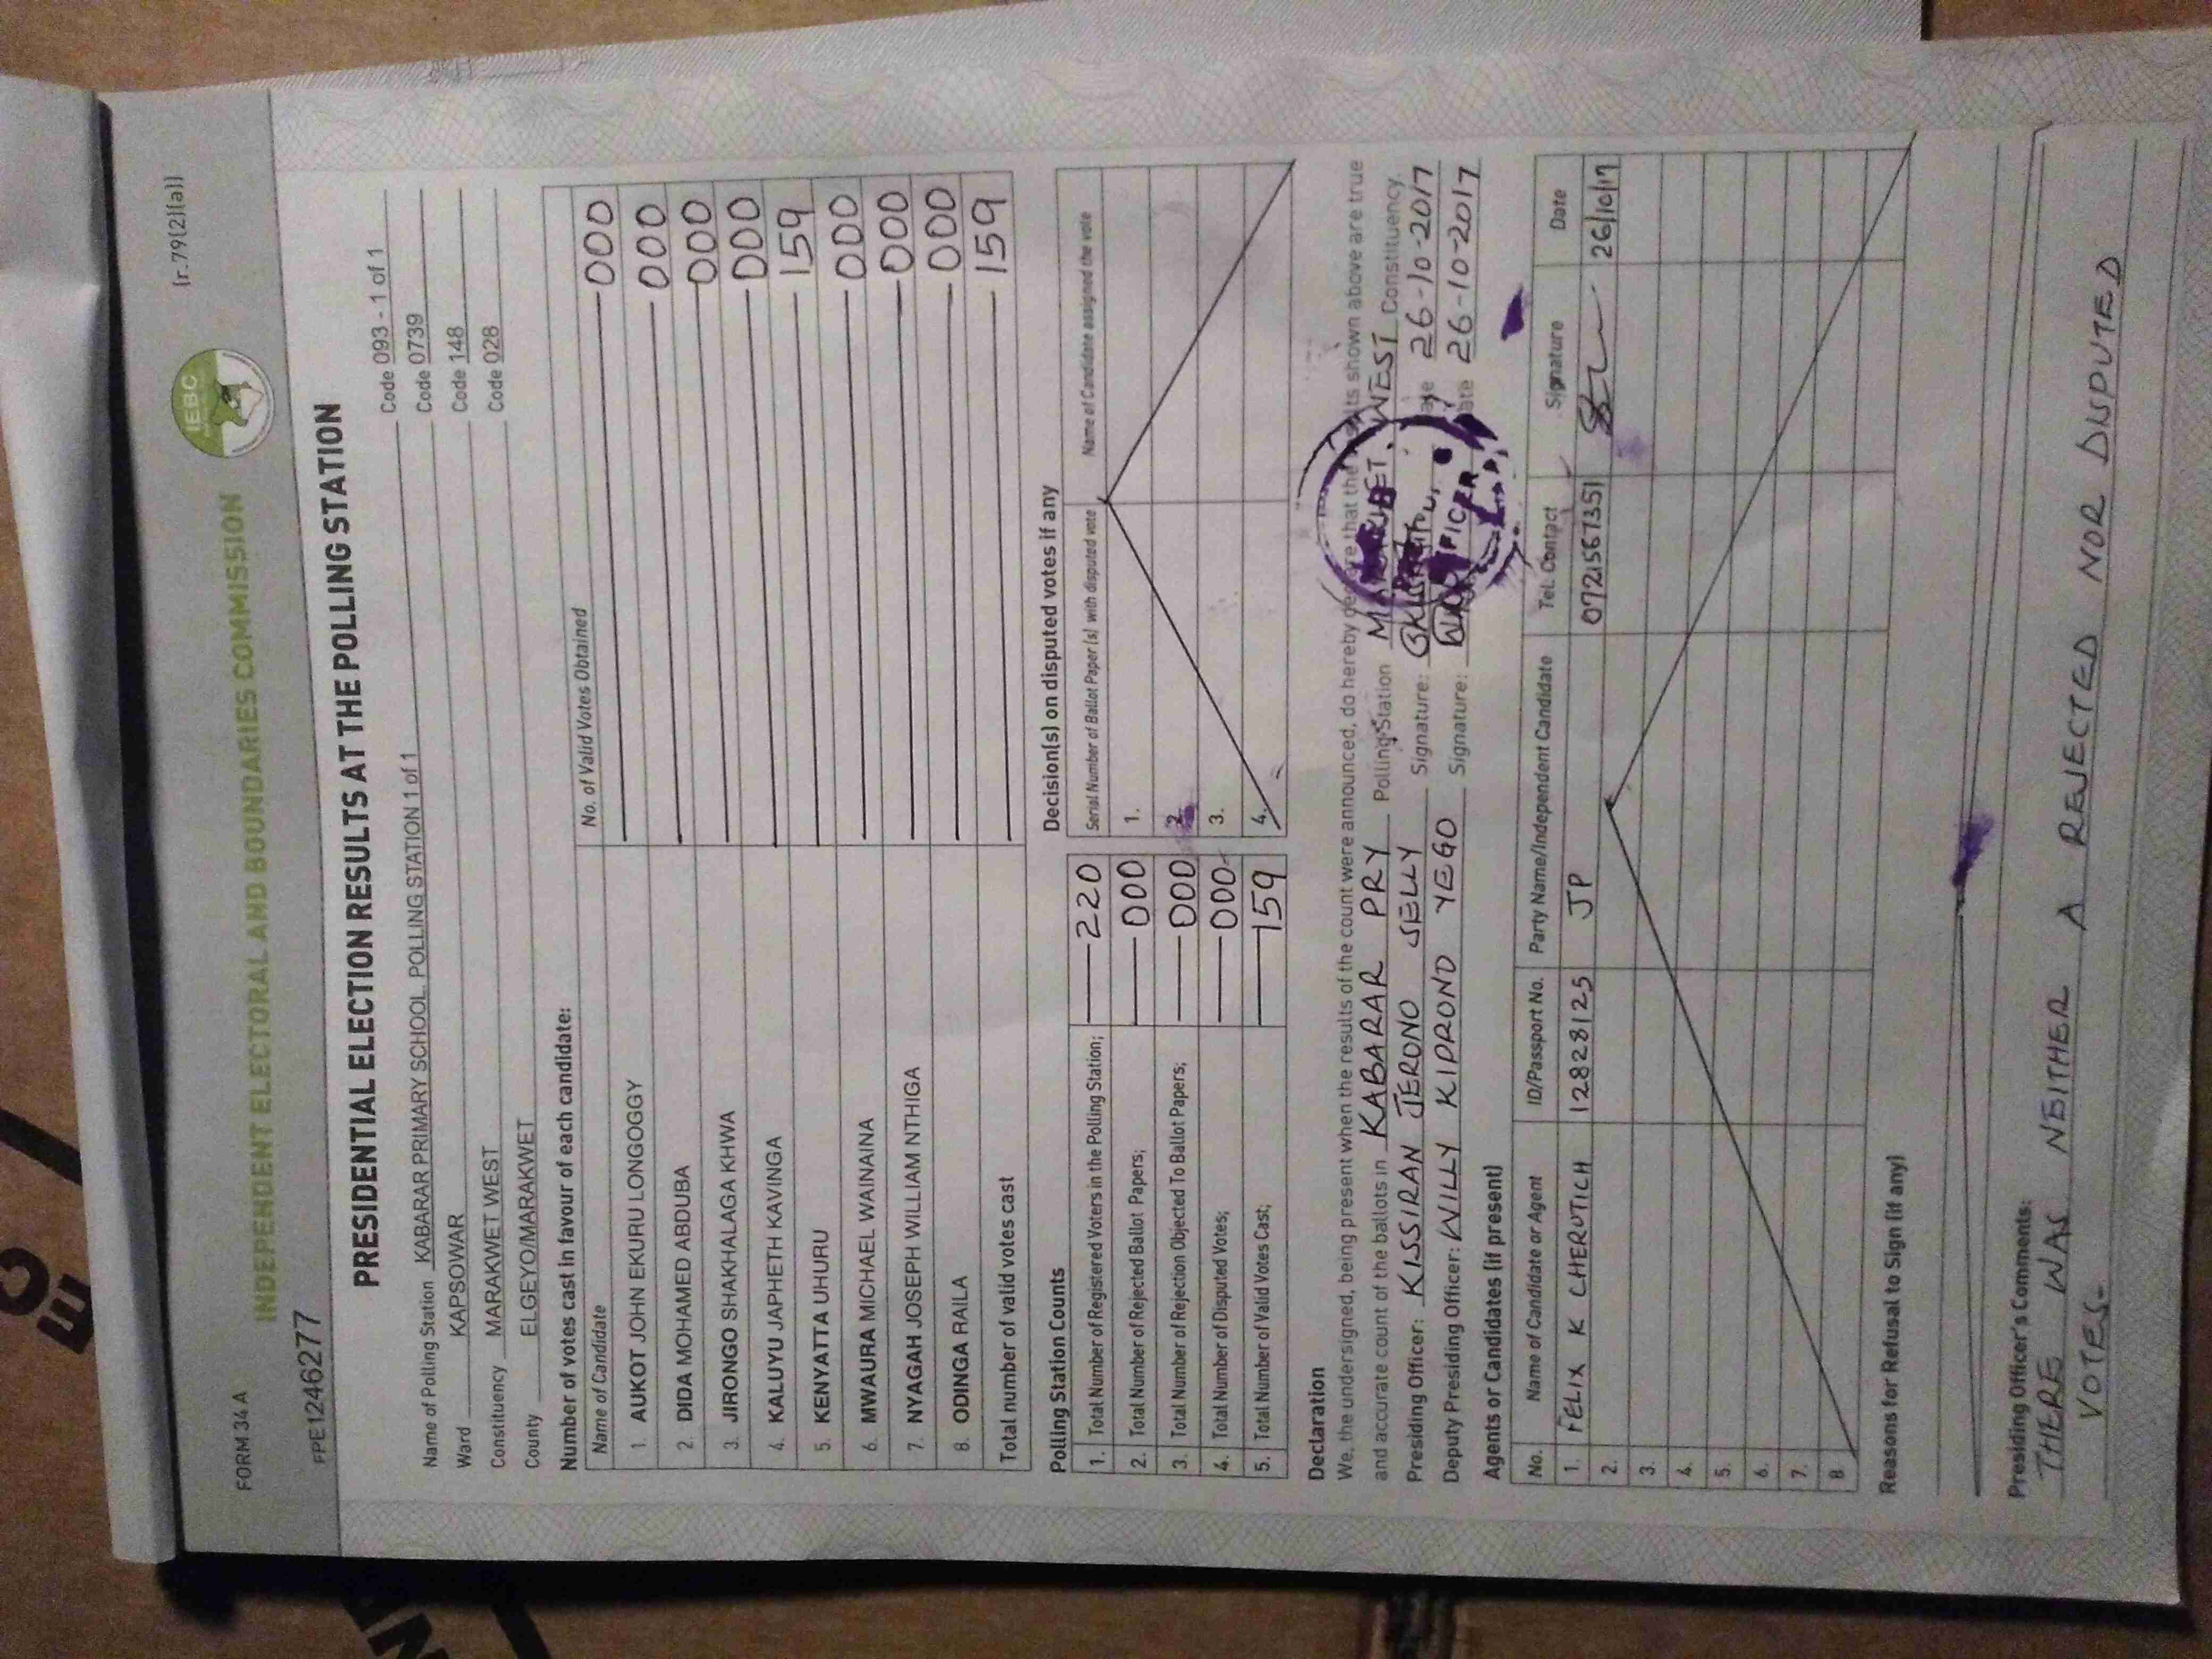 FORM 34 A
[r.79(2)(a)]
IEBC
INDEPENDENT ELECTORAL AND BOUNDARIES COMMISSION
FPE1246277
PRESIDENTIAL ELECTION RESULTS AT THE POLLING STATION
Name of Polling Station KABARAR PRIMARY SCHOOL POLLING STATION 1 of 1 Code 093 - 1 of 1
Ward KAPSOWAR Code 0739
Constituency MARAKWET WEST Code 148
County ELGEYO/MARAKWET Code 028
Number of votes cast in favour of each candidate:
Name of Candidate No. of Valid Votes Obtained
1. AUKOT JOHN EKURU LONGOGGY 000
2. DIDA MOHAMED ABDUBA 000
3. JIRONGO SHAKHALAGA KHWA 000
4. KALUYU JAPHETH KAVINGA 000
5. KENYATTA UHURU 159
6. MWAURA MICHAEL WAINAINA 000
7. NYAGAH JOSEPH WILLIAM NTHIGA 000
8. ODINGA RAILA 000
Total number of valid votes cast 159
Polling Station Counts
1. Total Number of Registered Voters in the Polling Station; 220
2. Total Number of Rejected Ballot Papers; 000
3. Total Number of Rejection Objected To Ballot Papers; 000
4. Total Number of Disputed Votes; 000
5. Total Number of Valid Votes Cast; 159
Decision(s) on disputed votes if any
Serial Number of Ballot Paper (s) with disputed vote Name of Candidate assigned the vote
1.
2.
3.
4.
Declaration
We, the undersigned, being present when the results of the count were announced, do hereby declare that the results shown above are true
and accurate count of the ballots in KABARAR PRY Polling Station MARAKWET WEST Constituency.
Presiding Officer: KISSIRAN JERONO JELLY Signature: Date 26-10-2017
Deputy Presiding Officer: WILLY KIPRONO YEGO Signature: Date 26-10-2017
Agents or Candidates (if present)
No. Name of Candidate or Agent ID/Passport No. Party Name/Independent Candidate Tel. Contact Signature Date
1. FELIX K CHERUTICH 12828125 JP 0721567351 26/10/17
2.
3.
4.
5.
6.
7.
8
Reasons for Refusal to Sign (if any)
Presiding Officer's Comments:
THERE WAS NEITHER A REJECTED NOR DISPUTED
VOTES.